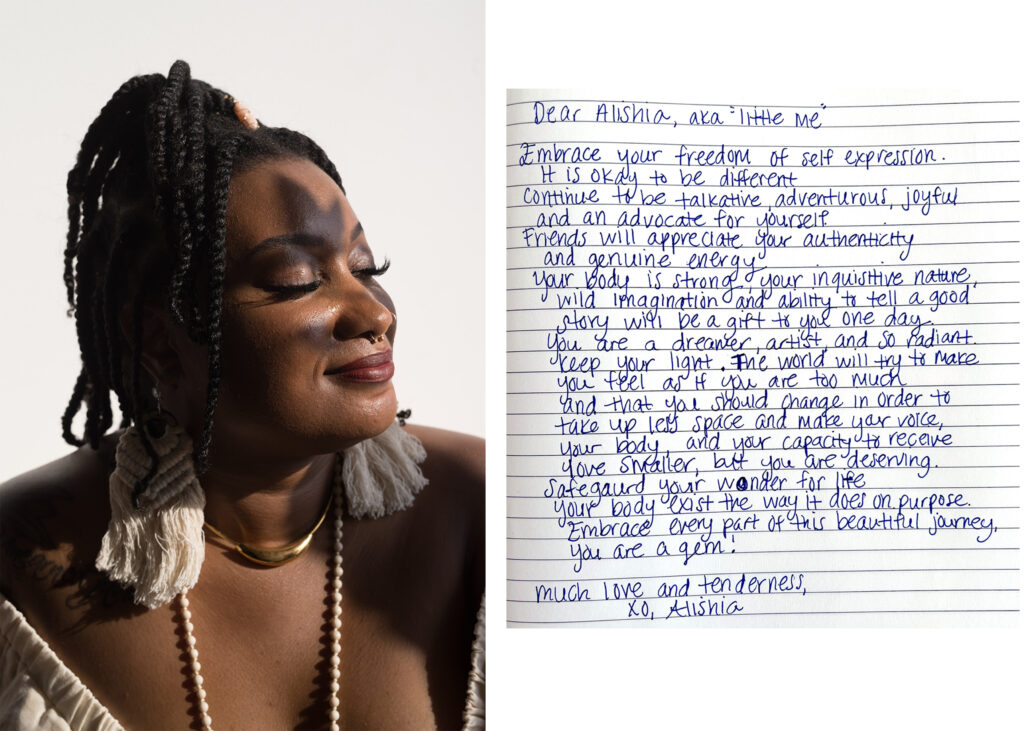 Dear Alishia, aka "little me"
Embrace your freedom of self expression.
It is okay to be different
Continue to be talkative, adventurous, joyful
and an advocate for yourself
Friends will appreciate your authenticity
and genuine energy
Your body is strong, your inquisitive nature,
wild imagination and ability to tell a good
story will be a gift to you one day.
You are a dreamer, artist, and so radiant.
Keep your light. The world will try to make
you feel as if you are too much
and that you should change in order to
take up less space and make your voice,
your body, and your capacity to receive
love smaller, but you are deserving.
Safegaurd your wonder for life
Your body exist the way it does on purpose.
Embrace every part of this beautiful journey,
you are a gem!
much love and tenderness,
XO, Alishia